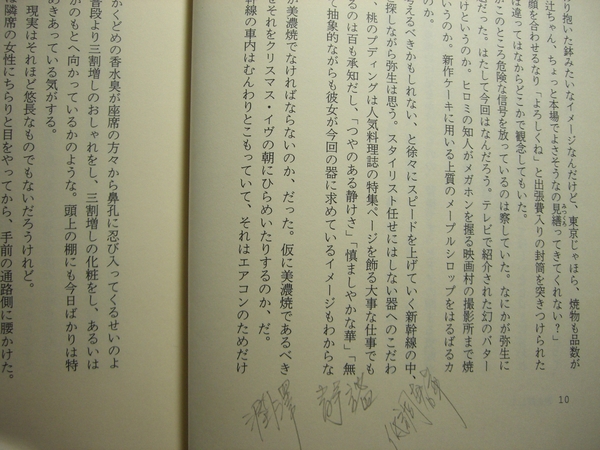 り抱いた鉢みたいなイメージなんだけど、東京じゃほら、焼物も品数が
辻ちゃん、ちょっと本場でよさそうなの見繕ってきてくれない?」
みつくろ
顔を合わせるなり「よろしくね」と出張費入りの封筒を突きつけられた
は違ってはなからどこかで観念してもいた。
このところ危険な信号を放っているのは察していた。なにかが弥生に
だった。はたして今回はなんだろう。テレビで紹介された幻のバター
けというのか。ヒロミの知人がメガホンを握る映画村の撮影所まで焼
いうのか。新作ケーキに用いる上質のメープルシロップをはるばるカ
のか。
考えるべきかもしれない、と徐々にスピードを上げていく新幹線の中、
探しながら弥生は思う。スタイリスト任せにはしない器へのこだわ
、桃のプディングは人気料理誌の特集ページを飾る大事な仕事でも
るのは百も承知だし、「つやのある静けさ」「慎ましやかな華」「無
て抽象的ながらも彼女が今回の器に求めているイメージもわからな
が美濃焼でなければならないのか、だった。仮に美濃焼であるべき
をそれをクリスマス・イヴの朝にひらめいたりするのか、だ。
幹線の車内はむんわりとこもっていて、それはエアコンのためだけ
10
潤澤
静謐
低調
かくどめの香水臭が座席の方々から鼻孔に忍び入ってくるせいのよ
普段より三割増しのおしゃれをし、三割増しの化粧をし、あるいは
かのもとへ向かっているかのような。頭上の棚にも今日ばかりは特
めきあっている気がする。
現実はそれほど悠長なものでもないだろうけれど。
は隣席の女性にちらりと目をやってから、手前の通路側に腰かけた。